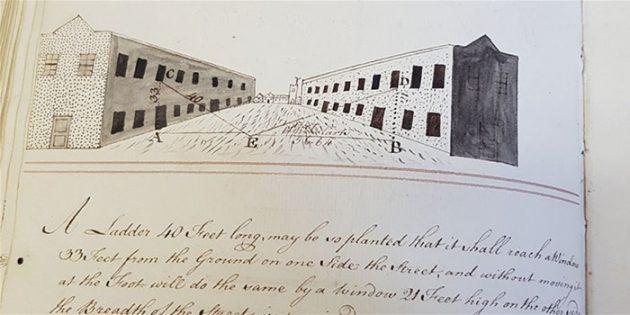 C
D
33
40
A
E
B
A Ladder 40 Feet long, may be so planted that it shall reach a Window
33 Feet from the Ground on one Side the Street, and without moving it
at the Foot will do the same by a Window 21 Feet high on the other side
the Breadth of the Street